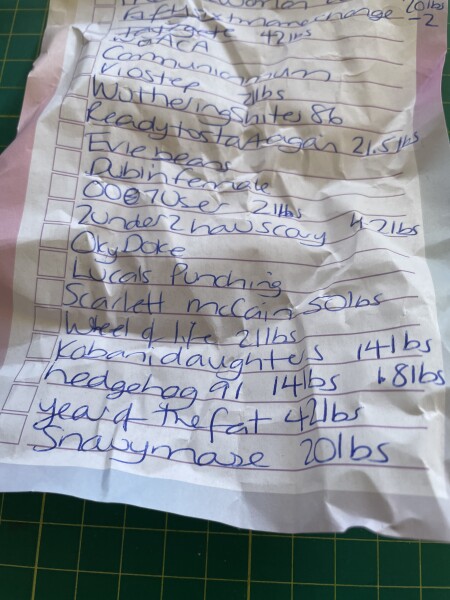 20lbs
-2
42lbs
Communicanum
Kloster 21lbs
WutheringShites 86
Readytostartagain 21.5lbs
Eviebeans
Dubinfemale
007User 21lbs
2under2howscary 42lbs
OkyDoke
Lucals Punching
Scarlett mcCain 50lbs
Wheel of life 21lbs
Kabanidaughters 141lbs
hedgehog 91 141lbs 68lbs
year of the fat 42lbs
Snavymase 20lbs